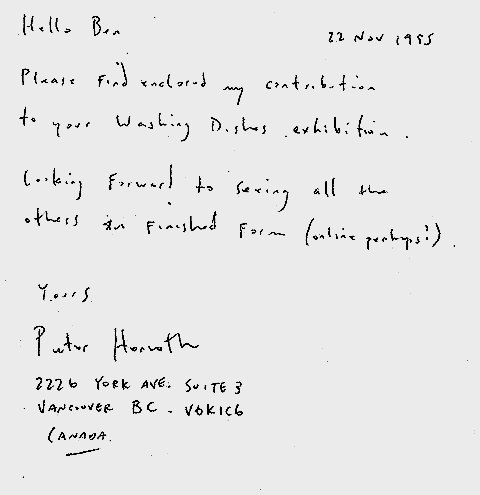 Hello Ben
22 Nov 1995
Please Find enclosed my contribution
to your Washing Dishes exhibition.
Looking Forward to seeing all the
others in Finished Form (online perhaps?).
Yours
Peter Horvath
2226 YORK AVE. SUITE 3
VANCOUVER BC - V6K1C6
CANADA.